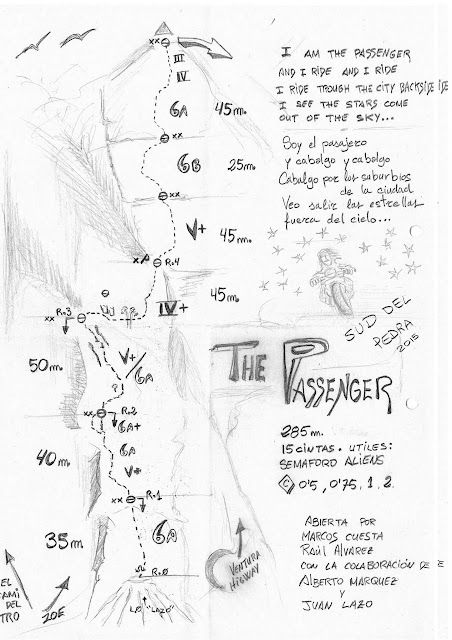 I AM THE PASSENGER
AND I RIDE AND I RIDE
I RIDE TROUGH THE CITY BACKSIDE
I SEE THE STARS COME
OUT OF THE SKY...
Soy el pasajero
y cabalgo y cabalgo
Cabalgo por los suburbios
de la ciudad
Veo salir las estrellas
fuera del cielo...
SUD DEL
PEDRA
2015
THE PASSENGER
285m.
15 CINTAS. UTILES:
SEMAFORO ALIENS
C 0'5, 0'75, 1, 2.
ABIERTA POR
MARCOS CUESTA
RAÚL ALVAREZ
CON LA COLABORACIÓN DE
ALBERTO MARQUEZ
Y
JUAN LAZO
VENTURA
HIGWAY
XX
III
IV
6A
45m.
XX
6B
25m.
XX
V+
45m.
R.4
45m.
IV+
R.3
XX
50m.
V+/6A
XX
R.2
6A+
40m.
6A
V+
XX
R.1
35m.
6A
R.0
"LAZO"
EL
CAMI
DEL
TRO
20E